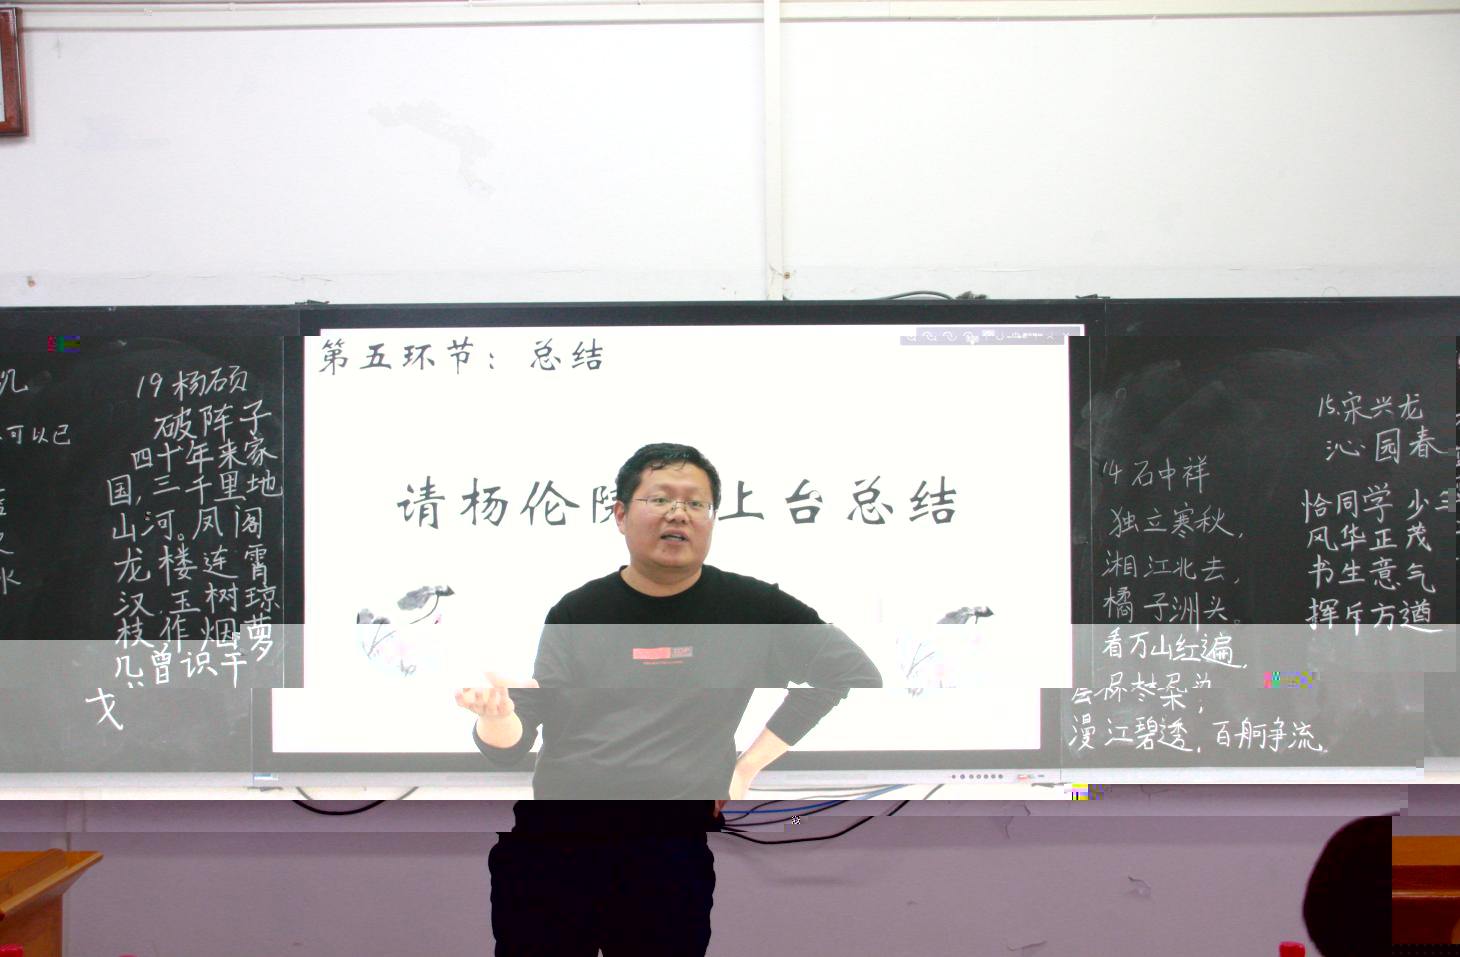 可以已
19 杨硕
破阵子
四十年来家
国,三千里地
山河。凤阁
龙楼连霄
汉,玉树琼
枝作烟萝
几曾识干
戈
第五环节：总结
请杨伦
上台总结
14 石中祥
独立寒秋,
湘江北去,
橘子洲头。
看万山红遍,
漫江碧透,百舸争流。
15.宋兴龙
沁园春
恰同学少
风华正茂
书生意气
挥斥方遒